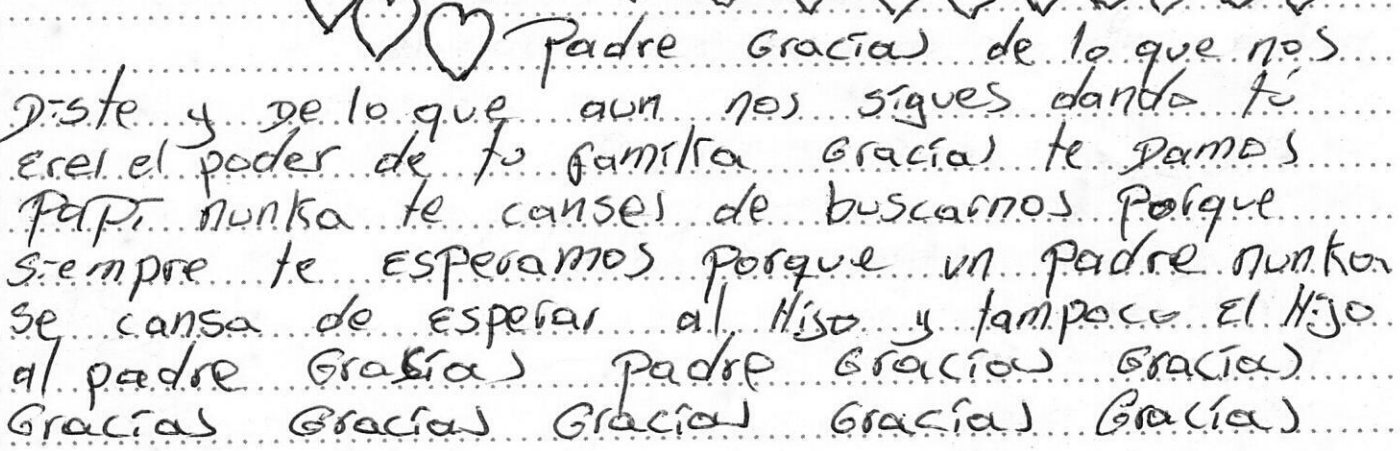 Padre Gracias de lo que nos
Diste y De lo que aun nos sigues dando tú
Eres el poder de tu familia Gracias te Damos
Papi nunka te canses de buscarnos Porque
siempre te Esperamos porque un padre nunka
se cansa de Esperar al Hijo y tampoco El Hijo
al padre Grasias padre Gracias Gracias
Gracias Gracias Gracias Gracias Gracias